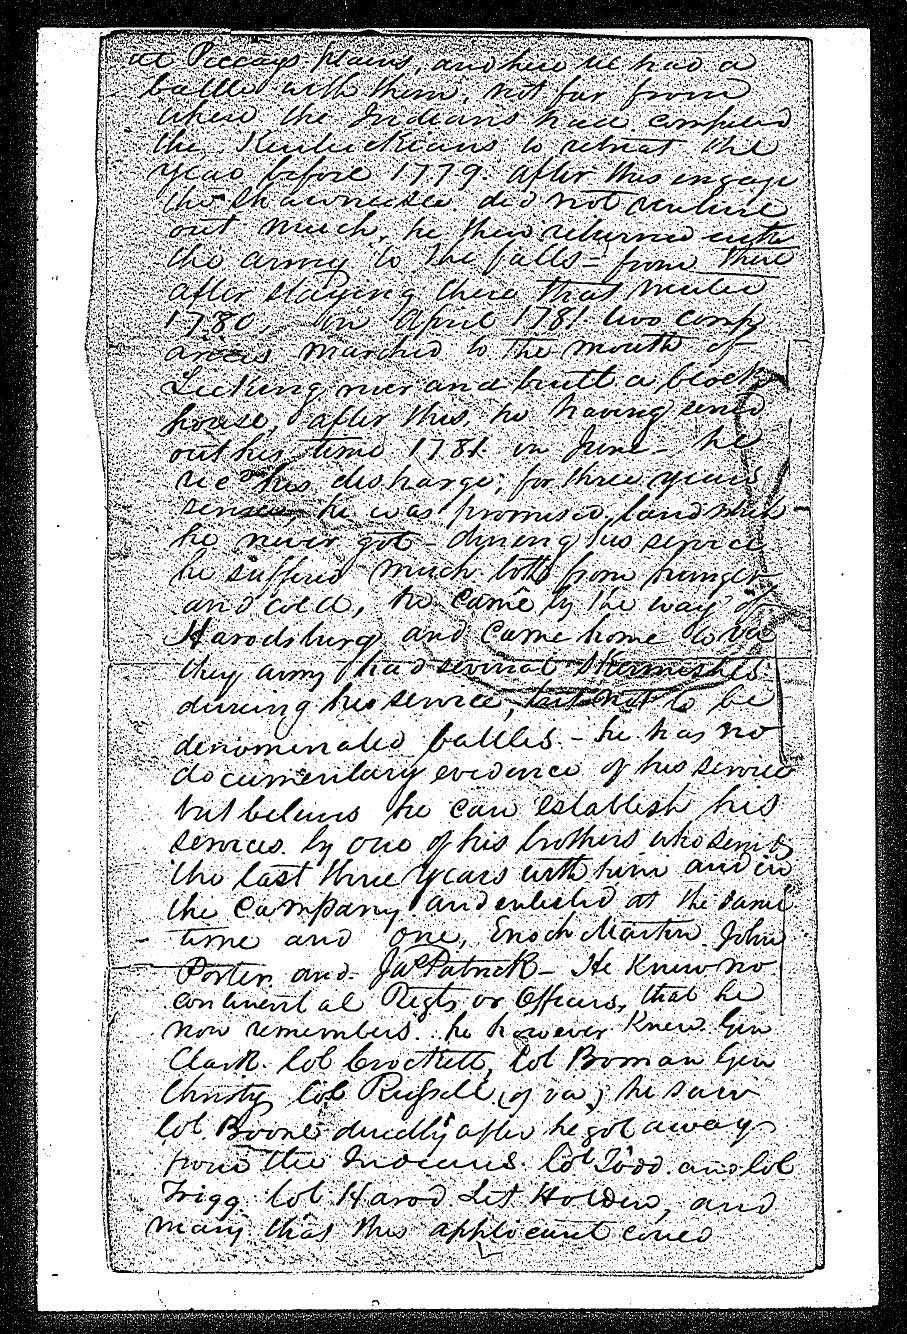 at Piccays plains, and here he had a
battle with them, not far from
where the Indians had compeled
the Kentuckians to retreat the
year before 1779. after this engage
the Shawneese did not venture
out much, he then returned with
the army to the falls - from there
after staying there that winter
1780, in April 1781 two comp
anies marched to the mouth of
Licking river and built a block
house, after this, he having served
out his time 1781 in June - he
recd his discharge, for three years
he was promised land which
he never got - during his service
he suffered much both from hunger
and cold, he came by the way of
Harodsburg and came home to va
they army had several skirmishes
during his service, but not to be
denominated battles. - he has no
documentary evidence of his service
but believes he can establish his
services by one of his brothers who served
the last three years with him and in
the company and enlisted at the same
time and one, Enoch Martin John
Porter and Jas Patrick - He Knew no
continental Regts or Officers, that he
now remembers. he however Knew Gen
Clark. Col Crockett, Col Boman Gen
Christy Col Russell (of va) he saw
Col. Boone directly after he got away
from the Indians. Col Todd. and Col
Trigg Col. Harod Let Holden, and
many that this applicant coued